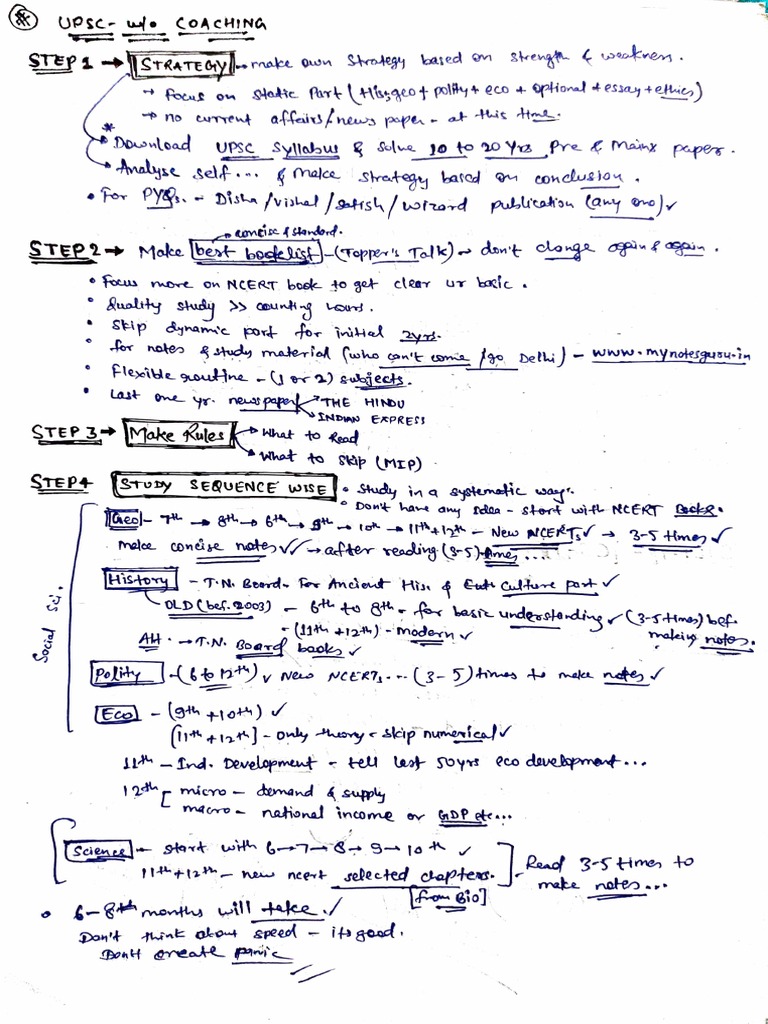 UPSC - w/o COACHING
STEP 1 → STRATEGY - make own Strategy based on strength & weakness.
→ Focus on Static Part (His+geo+polity+eco+optional+essay+ethics)
→ no current affairs/news paper - at this time.
* Download UPSC Syllabus & solve 10 to 20 Yrs Pre & Mains paper.
Analyse self... & make strategy based on conclusion.
• For PYQs. - Disha/vishal/satish/wizard publication (any one) ✓
concise & standard.
STEP 2 → Make best booklist - (Topper's Talk) → don't change again & again.
• Focus more on NCERT book to get clear ur basic.
• Quality study >> counting hours.
• Skip dynamic part for initial 2yrs.
• for notes & study material (who can't come/go Delhi) - www.mynotesguru.in
• Flexible routine - (1 or 2) subjects.
• Last one yr. newspaper → THE HINDU
→ INDIAN EXPRESS
STEP 3 → Make Rules → What to Read
→ What to skip (MIP)
STEP 4 STUDY SEQUENCE WISE • Study in a systematic way.
• Don't have any idea - start with NCERT Books.
Social Sci.
Geo - 7th → 8th → 6th → 9th → 10th → 11th+12th - New NCERTs ✓ → 3-5 times ✓
make concise notes ✓✓ → after reading (3-5) times...
History - T.N. Board - For Ancient His. & Culture part ✓
OLD (bef. 2003) - 6th to 8th - for basic understanding ✓ (3-5 times) bef.
- (11th+12th) - modern ✓ making notes.
AH. → T.N. Board books ✓
Polity - (6 to 12th) ✓ New NCERTs... (3-5) times to make notes ✓
Eco - (9th+10th) ✓
[11th+12th] - only theory - skip numerical ✓
11th - Ind. Development - tell last 50yrs eco development...
12th [ micro - demand & supply
macro - national income or GDP etc...
Science - start with 6→7→8→9→10th ✓
11th+12th - new ncert selected chapters.
[from Bio]
- Read 3-5 times to
make notes...
• 6-8th months will take. ✓
Don't think about speed - its good.
Don't create panic